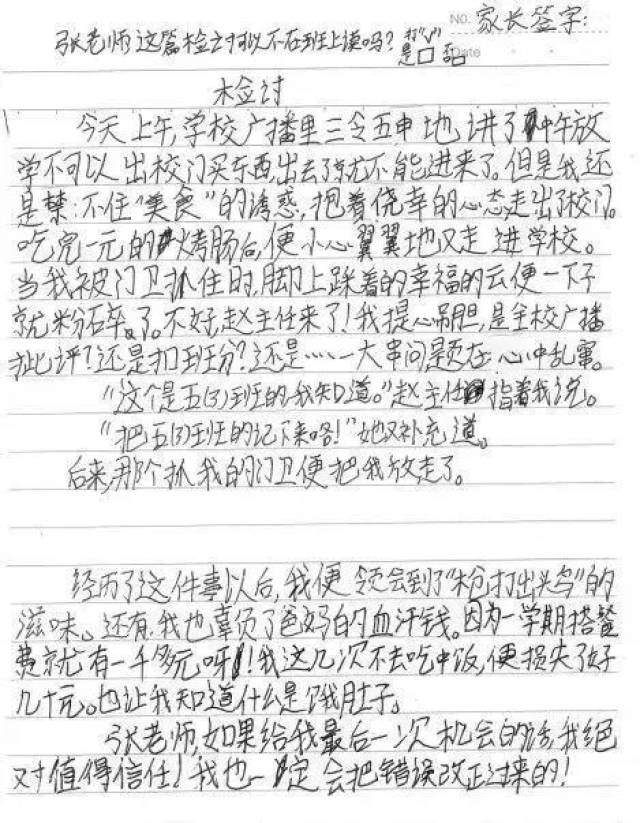 No. 家长签字:
张老师这篇检讨可以不在班上读吗? 打“√”
是□ 否□
Date
检讨
今天上午,学校广播里三令五申地讲了中午放
学不可以出校门买东西,出去了就不能进来了。但是我还
是禁不住“美食”的诱惑,抱着侥幸的心态走出了校门。
吃完一元的烤肠后,便小心翼翼地又走进学校。
当我被门卫抓住时,脚上踩着的幸福的云便一下子
就粉碎了。不好,赵主任来了!我提心吊胆,是全校广播
批评?还是扣班分?还是……一大串问题在心中乱窜。
“这个是五(3)班的,我知道。”赵主任指着我说。
“把五(3)班的记下来咯!”她又补充道。
后来,那个抓我的门卫便把我放走了。
经历了这件事以后,我便领会到了“枪打出头鸟”的
滋味。还有,我也辜负了爸妈的血汗钱。因为一学期搭餐
费就有一千多元呀!我这几次不去吃中饭,便损失了好
几十元。也让我知道什么是饿肚子。
张老师,如果给我最后一次机会的话,我绝
对值得信任!我也一定会把错误改正过来的!